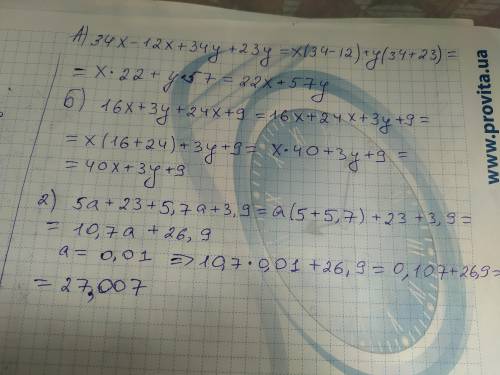 А) 34x-12x+34y+23y=x(34-12)+y(34+23)=
= x·22+y·57=22x+57y
б) 16x+3y+24x+9=16x+24x+3y+9=
= x(16+24)+3y+9= x·40+3y+9=
= 40x+3y+9
2) 5a+23+5,7a+3,9=a(5+5,7)+23+3,9=
= 10,7a+26,9
a= 0,01 => 10,7·0,01+26,9=0,107+26,9=
= 27,007
www.provita.ua